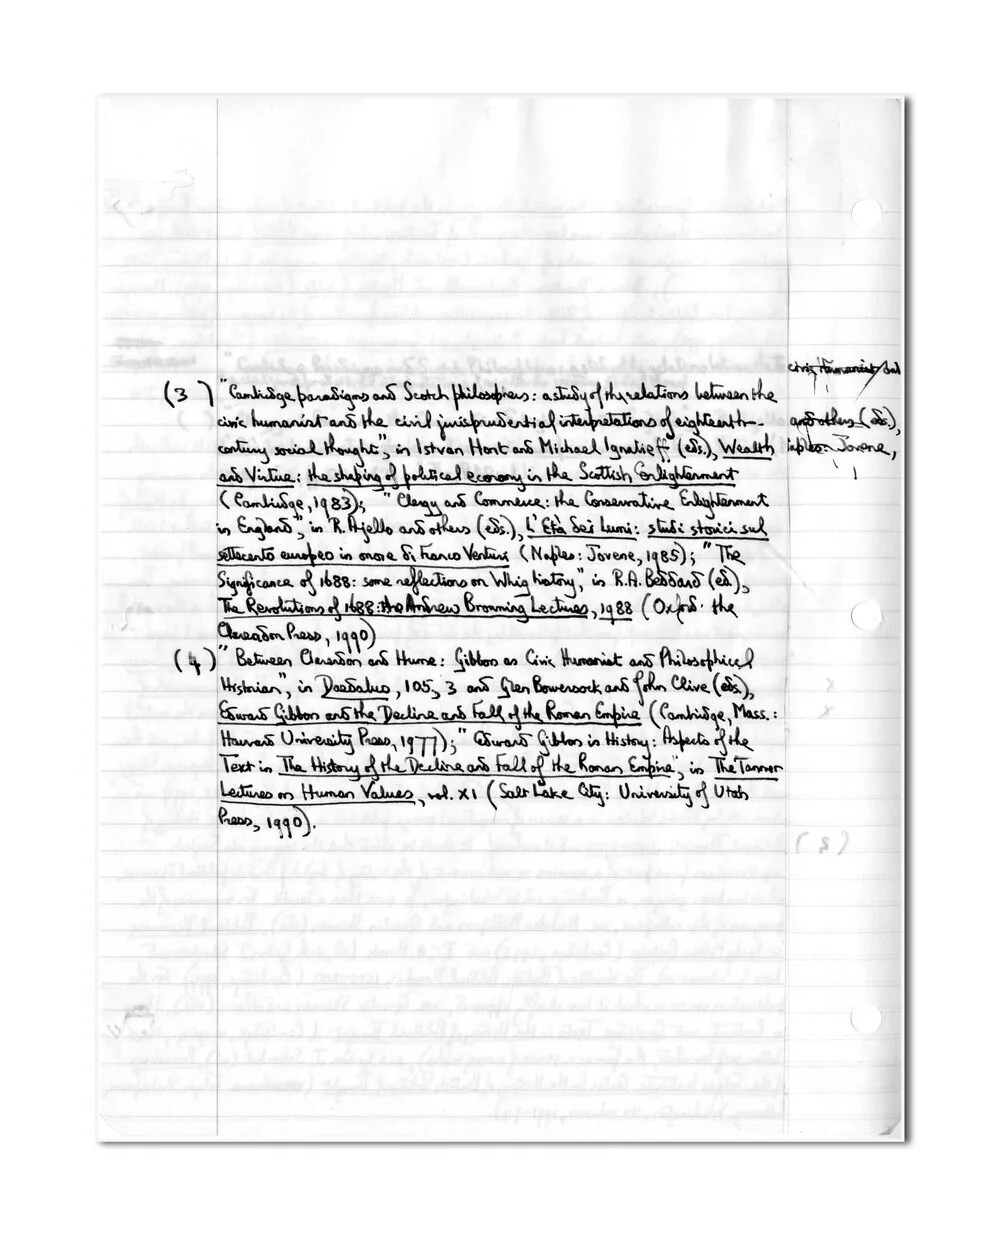 civic Humanist and
(3) "Cambridge paradigms and Scotch philosophers: a study of the relations between the
civic humanist and the civil jurisprudential interpretations of eighteenth-
century social thought", in Istvan Hont and Michael Ignatieff (eds.), Wealth
and Virtue: the shaping of political economy in the Scottish Enlightenment
(Cambridge, 1983); "Clergy and Commerce: the Conservative Enlightenment
in England", in R. Ajello and others (eds.), L'Età dei Lumi: studi storici sul
settecento europeo in onore di Franco Venturi (Naples: Jovene, 1985); "The
Significance of 1688: some reflections on Whig history", in R.A. Beddard (ed.),
The Revolutions of 1688: the Andrew Browning Lectures, 1988 (Oxford: the
Clarendon Press, 1990)
(4) "Between Clarendon and Hume: Gibbon as Civic Humanist and Philosophical
Historian", in Daedalus, 105, 3 and Glen Bowersock and John Clive (eds.),
Edward Gibbon and the Decline and Fall of the Roman Empire (Cambridge, Mass.:
Harvard University Press, 1977); "Edward Gibbon in History: Aspects of the
Text in The History of the Decline and Fall of the Roman Empire", in The Tanner
Lectures on Human Values, vol. XI (Salt Lake City: University of Utah
Press, 1990).
and others (eds.),
Naples: Jovene,